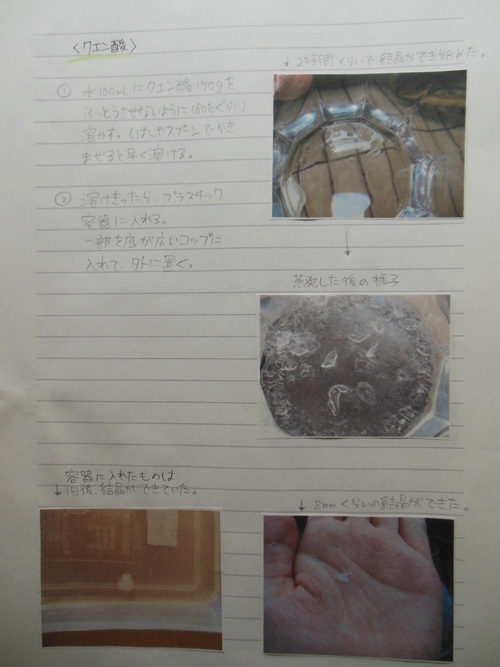 〈クエン酸〉
↓2時間くらいで結晶ができ始めた。
① 水100mLにクエン酸150gを
ふっとうさせないように(80とぐらい)
溶かす。(はしやスプーンでかき
まぜると早く溶ける。
② 溶けきったら、プラスチック
容器に入れる。
一部を底が広いコップに
入れて、外に置く。
↓
蒸発した後の様子
容器に入れたものは
↓1日後、結晶ができていた。
↓8mmくらいの結晶ができた。